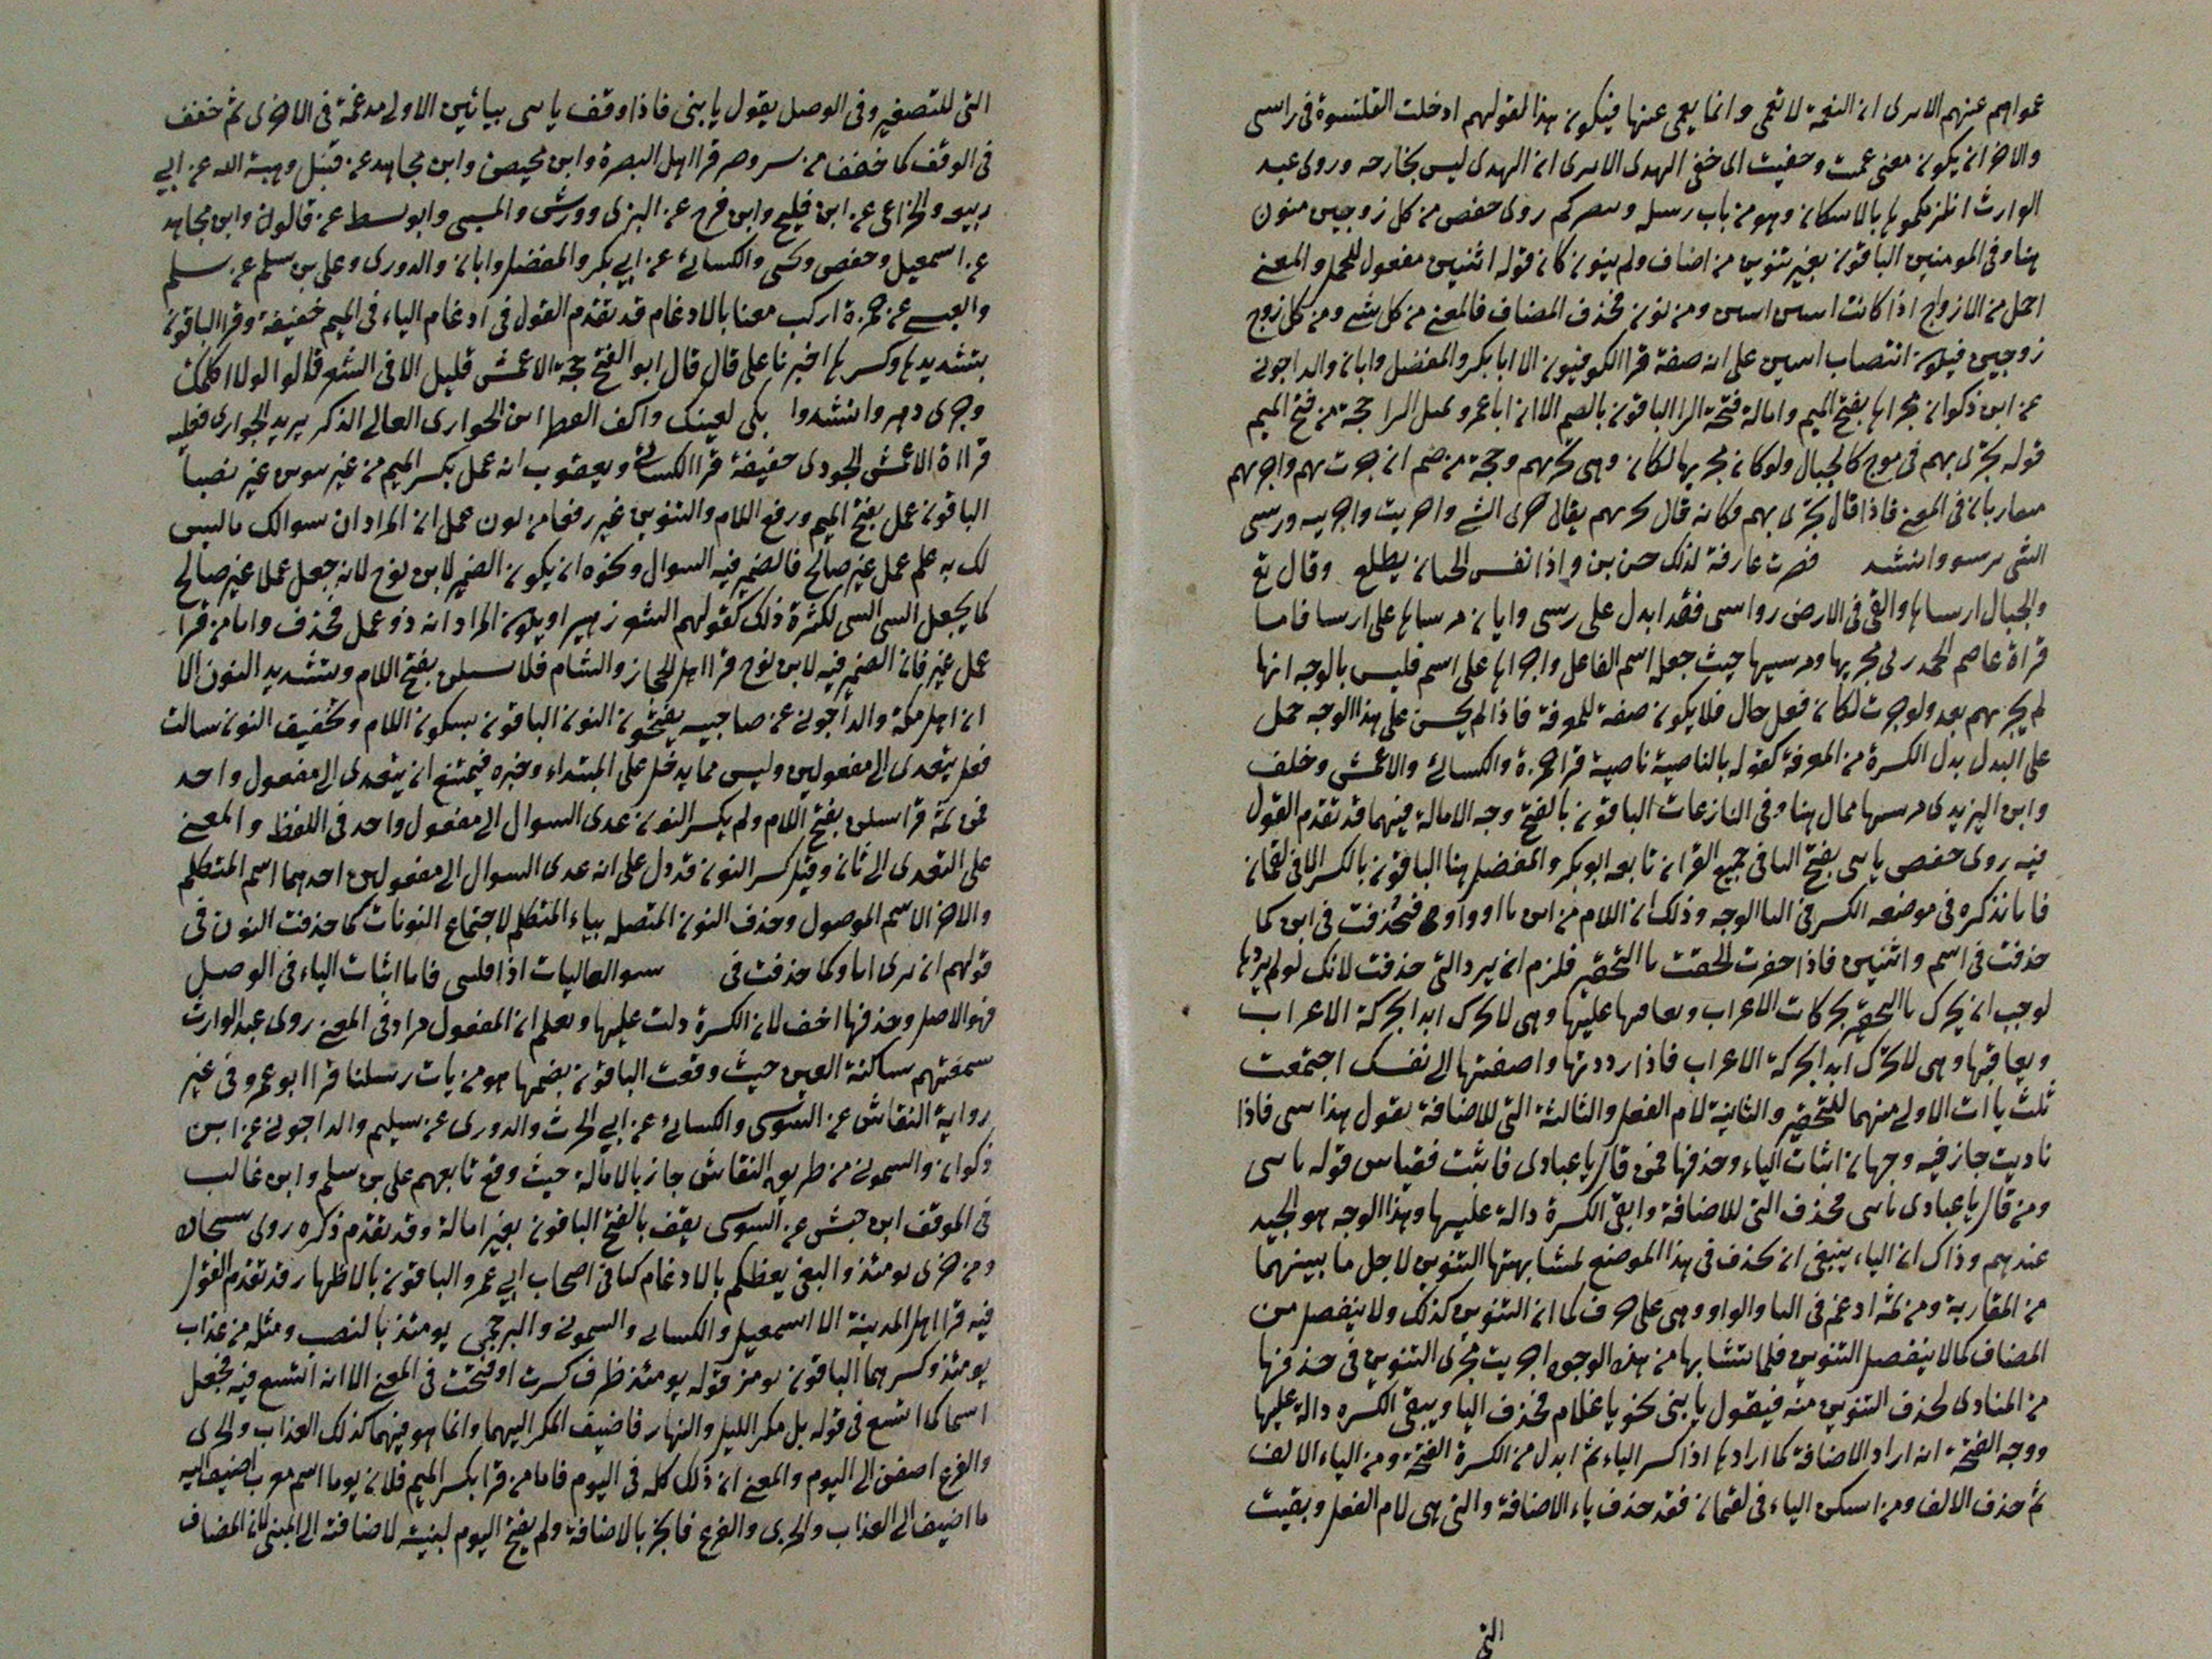 عموا هم عنهم الا ترى ان النعمة لا تعمى وانما يعمى عنها فيكون هذا لقولهم ادخلت القلنسوة فى راسى
والاخر ان يكون معنى عمت وخفيت الى خفى الهدى الا ترى ان الهدى ليس بخارحه وروى عبد
الوارث انلزمكموها بالاسكان وهو من باب رسله وىصركم روى حفص من كل زوجين منون
هنا وفى المومنين الباقون بغير تنوين من اضاف ولم ينون كان قوله اثنين مفعول للحمل والمعنى
احمل من الازواج اذا كانت اىىىن اىىىن ومن نون فحذف المضاف فالمعنى من كل شى ومن كل زوج
زوجين فيكون انتصاب اىىىن على انه صفة قرا الكوفيون الا ابا بكر والمفضل وابان والداجونى
عن ابن ذكوان مجراها بفتح الميم وامالة فتحة الرا الباقون بالضم الا ان ابا عمرو ىمىل الرا حجة من فتح الميم
قوله تجرى بهم فى موج كالجبال ولو كان مجريها لكان وهى تجريهم وحجة من ضم ان جرت بهم واجرىهم
ىىقاربان فى المعنى فاذا قال تجرى بهم فكانه قال تجرىهم يقال جرى الشى واجريت واجريىه ورسى
الشى يرسو وانشد فصبرت عارفة لذلك حرة واذا نفس الجبان يطلع وقال تع
والجبال ارساها والقى فى الارض رواسى فقد ابدل على رسى وايان مرساها على ارسا فاما
قراة عاصم الجحدرى مجريها ومرسيها حيث جعله اسم الفاعل واجراها على اسم فليس بالوجه انها
لم يجرىهم بعد ولو جرت لكان فعل حال فلا يكون صفة للمعرفة فاذا لم يحسن على هذا الوجه حمل
على البدل بدل النكرة من المعرفة كقوله بالناصية ناصية قرا حمزة والكسائى والاعمش وخلف
وابن اليزيدى مرسيها ممال هنا وفى النازعات الباقون بالفتح وجه الامالة فيهما قد تقدم القول
فيه روى حفص يا بنى بفتح اليا فى جميع القران تابعه ابو بكر والمفضل هنا الباقون بالكسر الا فى لقمان
فانا نذكره فى موضعه الكسر فى اليا الوجه وذلك ان اللام من ابن يا او واو فحذفت فى ابن كما
حذفت فى اسم واثنين فاذا حقرت لحقت يا التحقير فلزم ان يرد التى حذفت لانك لو لم يردها
لوجب ان يحرك يا التحقير بحركات الاعراب وىعاقبها عليها وهى لا تحرك ابدا بحركة الاعراب
ويعاقبها وهى لا تحرك ابدا بحركة الاعراب فاذا رددتها واضفتها الى نفسك اجتمعت
ثلث يا ات الاولى منهما للتحقير والثانية لام الفعل والثالثة التى للاضافة يقول هذا بنى فاذا
ناديت جاز فيه وجهان اثبات الياء وحذفها فمن قال يا عبادى فاثبت فقياس قوله يا بنى
ومن قال يا عبادى يا بنى فحذف التى للاضافة وابقى الكسرة دالة عليها وهذا الوجه هو الجيد
عندهم وذاك ان الياء ينبغى ان تحذف فى هذا الموضع لمشابهتها التنوين لاجل ما بينهما
من المقاربة ومن ثمة ادغم فى اليا والواو وهى على حرف كما ان التنوين كذلك ولا ينفصل من
المضاف كما لا ينفصل التنوين فلما تشابها من هذه الوجوه اجريت مجرى التنوين فى حذفها
من المنادى لحذف التنوين منه فيقول يا بنى نحو يا غلام فحذف اليا ويبقى الكسره دالة عليها
ووجه الفتحة انه اراد الاضافة كما اراد بها اذا كسر الياء ثم ابدل من الكسرة الفتحة ومن الياء الالف
ثم حذف الالف ومن اسكن الياء فى لقمان فقد حذف ياء الاضافة والتى هى لام الفعل وبقيت
التى
التى للتصغير وفى الوصل يقول يا بنى فاذا وقف يا بنى بيائين الاولى مدغمة فى الاخرى ثم خفف
فى الوقف كما خفف من سر وضر قرا اهل البصرة وابن محيصن وابن مجاهد عن قنبل وهبة الله عن ابى
ربيعه والخزاعى عن ابن فليح وابن فرح عن البزى وورش والمسيبى وابو نشيط عن قالون وابن مجاهد
عن اسمعيل وحفص وىحيى والكسائى عن ابى بكر والمفضل وابان والدورى وعلى بن سلم عن سليم
والعبسى عن حمزة اركب معنا بالادغام قد تقدم القول فى ادغام الباء فى الميم خفيفة وقرا الباقون
بتشديدها وكسرها اخبرنا على قال قال ابو الفتح حجة الاعمش قليل الا فى الشعر قالوا لولا اكلمك
وجرى دهر وانشدوا بكى لعينك واكف القطر ابن الحوارى العالى الذكر يريد الحوارى فعليه
قراءة الاعمش الجودى خفيفة قرا الكسائى ويعقوب انه عمل بكسر الميم من غير ىنوىن غير نصبا
الباقون عمل بفتح الميم ورفع اللام والتنوين غير رفعا من نون عمل ان المراد ان سوالك ما ليس
لك به علم عمل غير صالح فالضمير فيه السوال ونحوه ان يكون الضمير لابن نوح لانه جعل عملا غير صالح
كما يجعل الشى الشى لكثرة ذلك كقولهم الشعر زهير او يكون المراد انه ذو عمل فحذف واما من قرا
عمل غير فان الضمير فيه لابن نوح قرا اهل الحجاز والشام فلا تسلن بفتح اللام وتشديد النون الا
ان اهل مكة والداجونى عن صاحبيه يفتحون النون الباقون بسكون اللام وتخفيف النون سالت
فعل يتعدى الى مفعولين وليس مما يدخل على المبتداء وخبره فيمتنع ان يتعدى الى مفعول واحد
فمن ثمة قرا تسلن بفتح اللام ولم يكسر النون عدى السوال الى مفعول واحد فى اللفظ والمعنى
على التعدى الى ثان وقيل كسر النون قد دل على انه عدى السوال الى مفعولين احدهما اسم المتكلم
والاخر الاسم الموصول وحذف النون المتصلة بياء المتكلم لاجتماع النونات كما حذفت النون فى
قولهم انى ارى اما وكما حذفت فى ىىسو العاليات اذا فلينى فاما اثبات الياء فى الوصل
فهو الاصل وحذفها اخف لان الكسرة دلت عليها ويعلم ان المفعول مراد فى المعنى روى عبد الوارث
سمعتهم ساكنة العين حيث وقعت الباقون بضمها هو من باب رسلنا قرا ابو عمرو فى غير
رواية النقاش عن السوسى والكسائى عن ابى الحرث والدورى عن سليم والداجونى عن ابن
ذكوان والسمونى من طريق النقاش جاز بالامالة حيث وقع تابعهم على بن سلم وابن غالب
فى الموقف ابن حبش عن السوسى يقف بالفتح الباقون بغير امالة وقد تقدم ذكره روى سجاده
ومن خزى يومئذ والبغى يعظكم بالادغام كباقى اصحاب ابى عمرو الباقون بالاظهار قد تقدم القول
فيه قرا اهل المدينة الا اسمعيل والكسائى والسمونى والبرجمى يومئذ بالنصب ومثله من عذاب
يومئذ وكسرهما الباقون يومئذ قوله يومئذ ظرف كسرت او فتحت فى المعنى الا انه اتسع فيه فجعل
اسما كما اتسع فى قوله بل مكر الليل والنهار فاضيف المكر اليهما وانما هو فيهما كذلك العذاب والخزى
والفزع اضفن الى اليوم والمعنى ان ذلك كله فى اليوم فاما من قرا بكسر الميم فلان يوما اسم معرب اضيف اليه
ما اضيف الى العذاب والخزى والفزع فانجر بالاضافة ولم يفتح اليوم لبنيته لاضافته الى المبنى لان المضاف